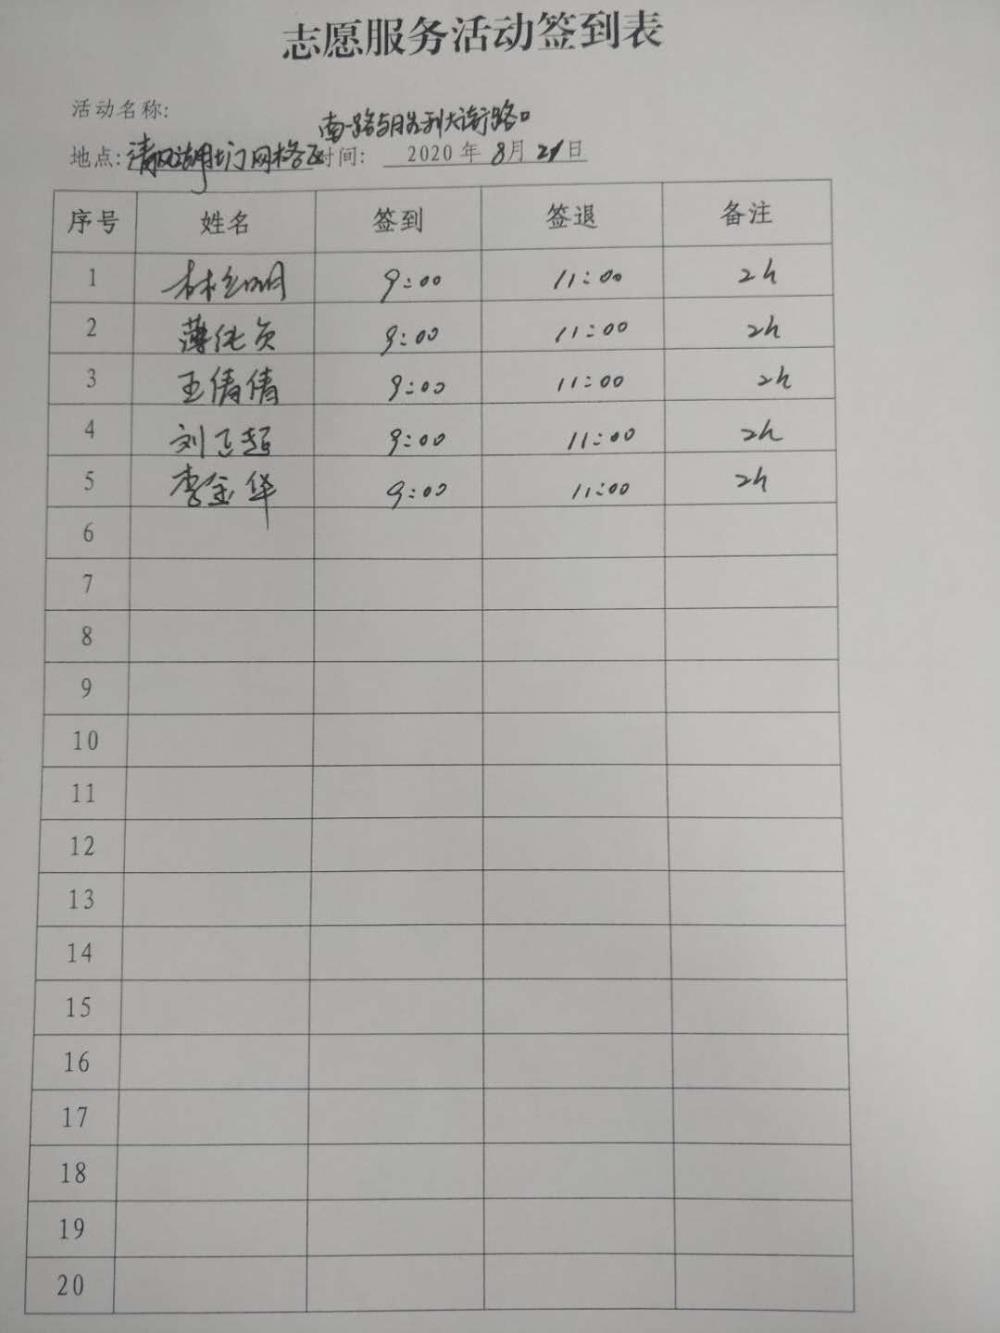 志愿服务活动签到表
活动名称:
南一路与胜利大街路口
地点: 清风湖 网格区 时间: 2020 年 8 月 21 日
序号 姓名 签到 签退 备注
1 9:00 11:00 2h
2 薄纯贞 9:00 11:00 2h
3 王倩倩 9:00 11:00 2h
4 刘正超 9:00 11:00 2h
5 李金华 9:00 11:00 2h
6
7
8
9
10
11
12
13
14
15
16
17
18
19
20